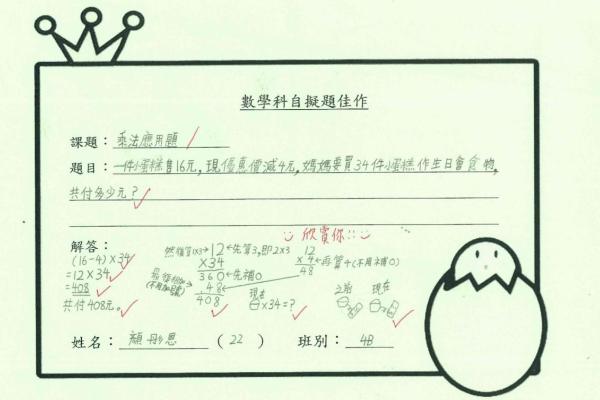 數學科自擬題佳作
課題：乘法應用題
題目：一件小蛋糕售16元，現優惠價減4元，媽媽要買34件小蛋糕作生日會食物，
共付多少元？
欣賞你!!
解答：
(16-4)×34
=12×34
=408
共付408元。
然後算1×3→12←先算3，即2×3
×34
360←先補0
48
408
最後相加
(不用加號)
12
×4←再算4(不用補0)
48
現在
×34=?
之前 現在
姓名：顏彤恩 (22) 班別：4B